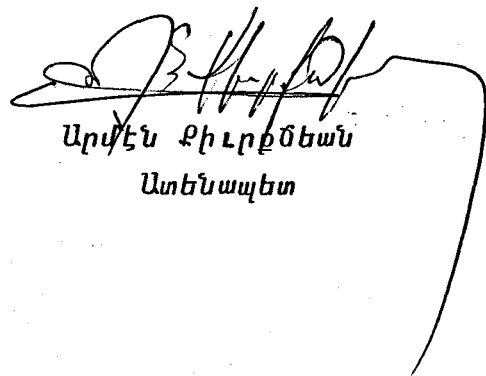 Արմէն Քիւրքճեան
Ատենապետ